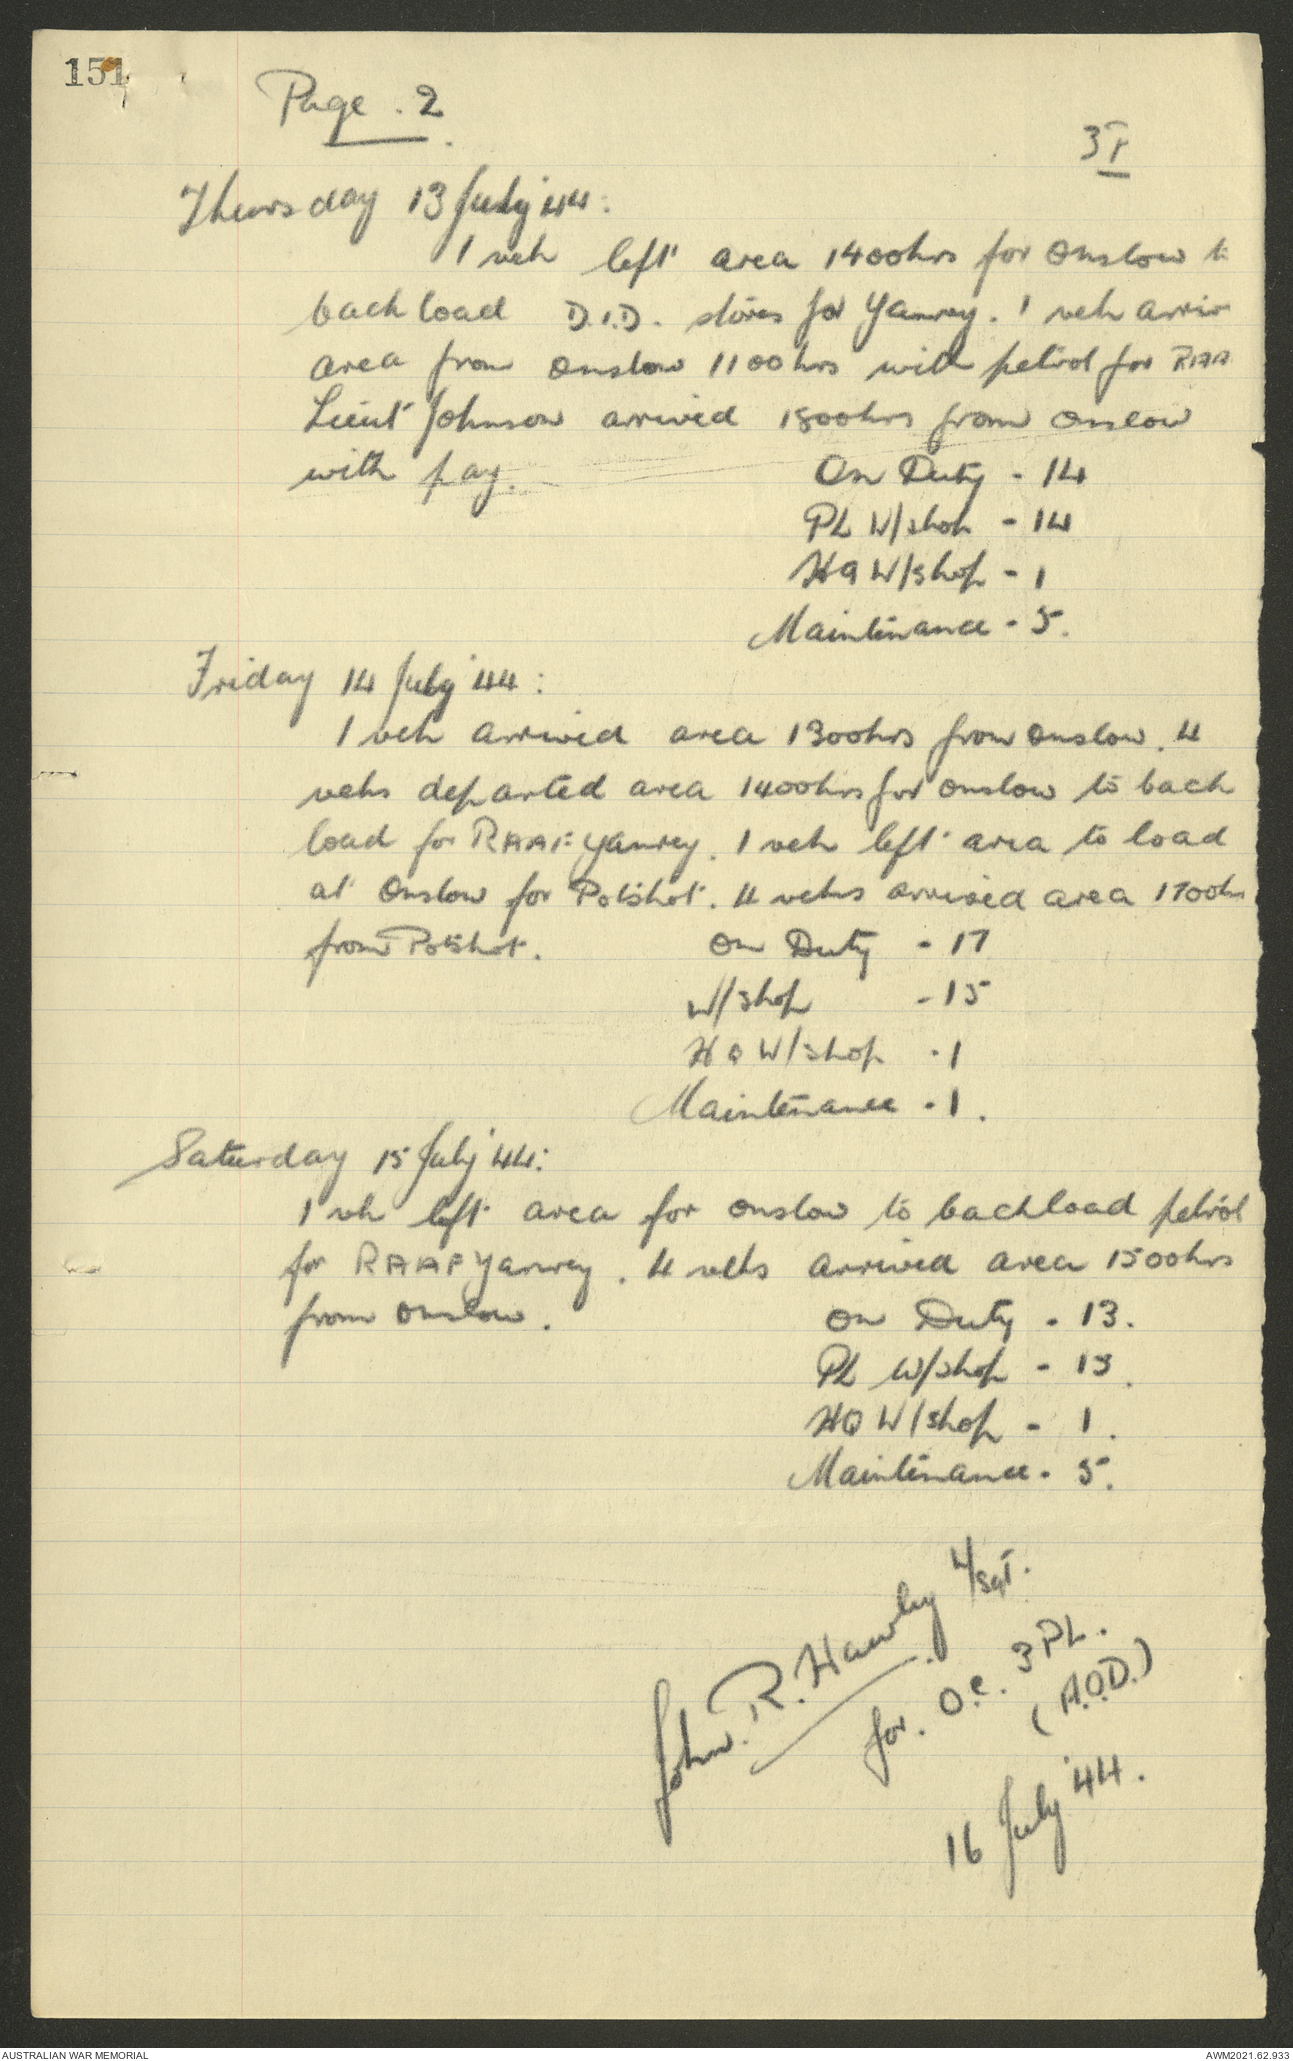 151
Page. 2
Thursday 13 July '44:
1 veh left area 1400hrs for Onslow to
back load D.I.D. stores for Yanrey. 1 veh arriv
area from Onslow 1100hrs with petrol for RAA
Lieut Johnson arrived 1800hrs from Onslow
with pay.
On Duty - 14
PL W/shop - 14
HQ W/shop - 1
Maintenance - 5.
Friday 14 July '44:
1 veh arrived area 1300hrs from Onslow. 4
vehs departed area 1400hrs for Onslow to back
load for RAAF Yanrey. 1 veh left area to load
at Onslow for Potshot. 4 vehs arrived area 1700hrs
from Potshot.
On Duty - 17
W/shop - 15
HQ W/shop - 1
Maintenance - 1.
Saturday 15 July '44:
1 veh left area for Onslow to backload petrol
for RAAF Yanrey. 4 vehs arrived area 1500hrs
from Onslow.
On Duty - 13.
PL W/shop - 13.
HQ W/shop - 1.
Maintenance - 5.
John. R. Hawley L/Sgt.
for. O.C. 3 PL.
(A.O.D.)
16 July '44.
AUSTRALIAN WAR MEMORIAL
AWM2021.62.933